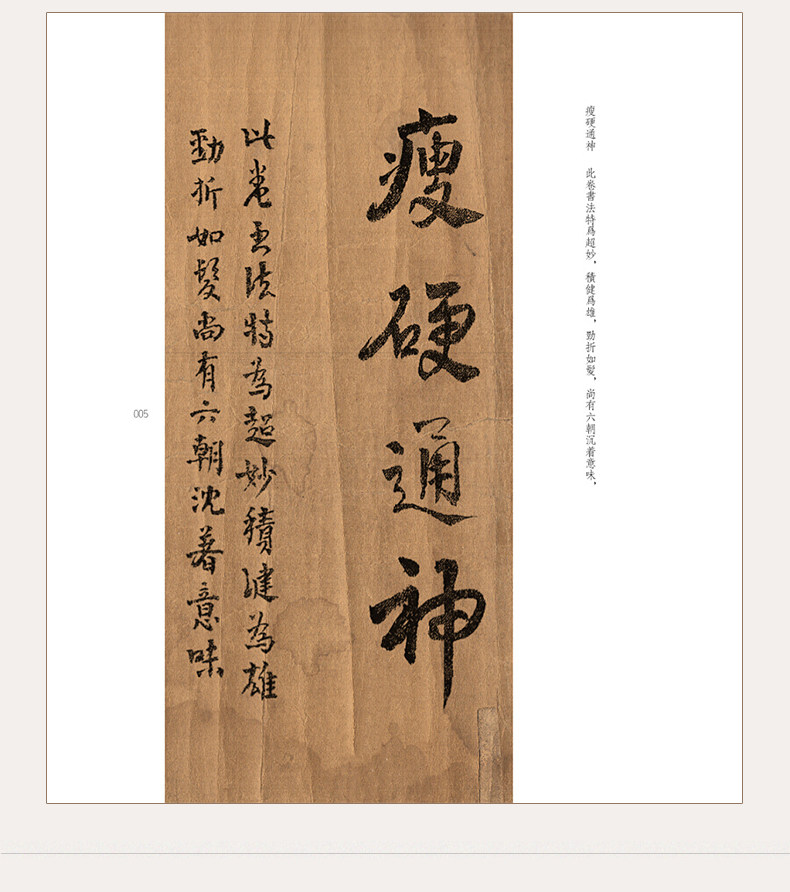 瘦硬通神 此卷書法特爲超妙，積健爲雄，勁折如髮，尚有六朝沉着意味。
瘦硬通神
此卷書法特為超妙積健為雄
勁折如髮尚有六朝沈著意味
005